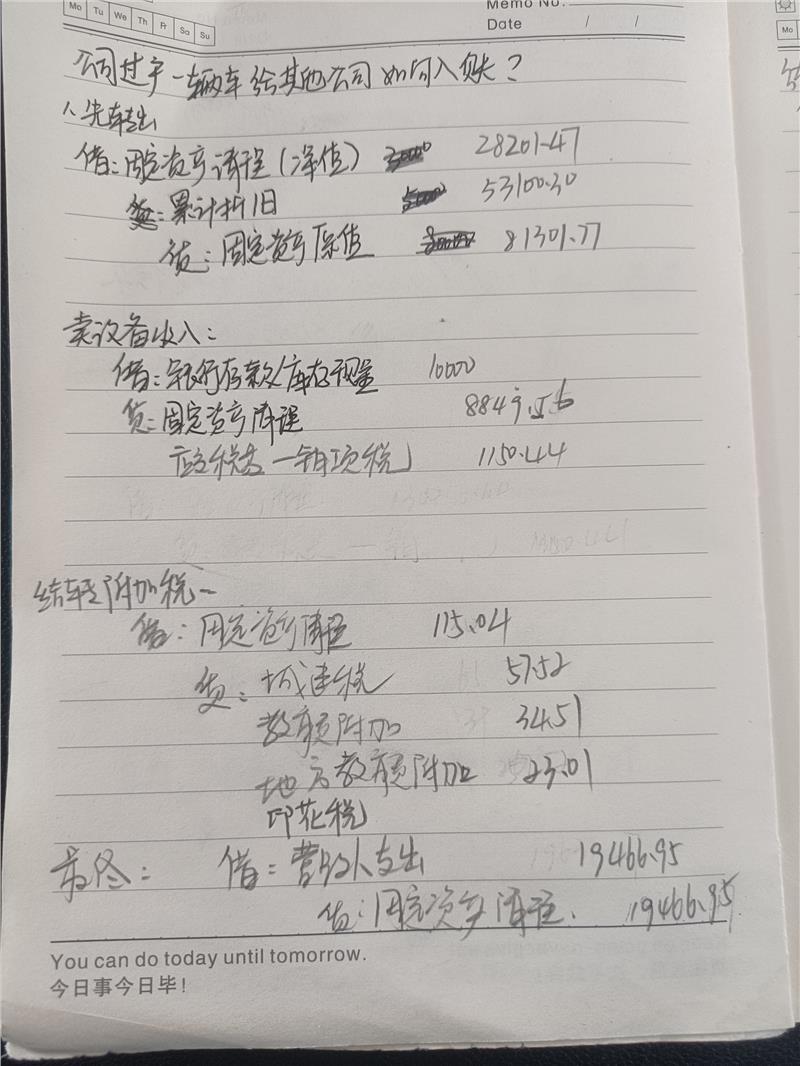 Mo Tu We Th Fr Sa Su
Memo No.
Date / /
公司过户一辆车给其他公司如何入账?
1、先转出
借:固定资产清理(净值) 28201.47
累计折旧 53100.30
贷:固定资产原值 81301.77
卖设备收入:
借:银行存款/库存现金 10000
贷:固定资产清理 8849.56
应交税费—销项税 1150.44
结转附加税—
借:固定资产清理 115.04
贷:城建税 57.52
教育费附加 34.51
地方教育费附加 23.01
印花税
最终: 借:营业外支出 19466.95
贷:固定资产清理. 19466.95
You can do today until tomorrow.
今日事今日毕!
Mo